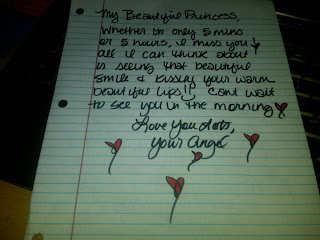 My Beautiful Princess,
Whether its only 5 mins
or 5 hours, i miss you &
all i can think about
is seeing that beautiful
smile & kissing your warm
beautiful lips!! Cant wait
to see you in the morning
Love You Lots,
your angel